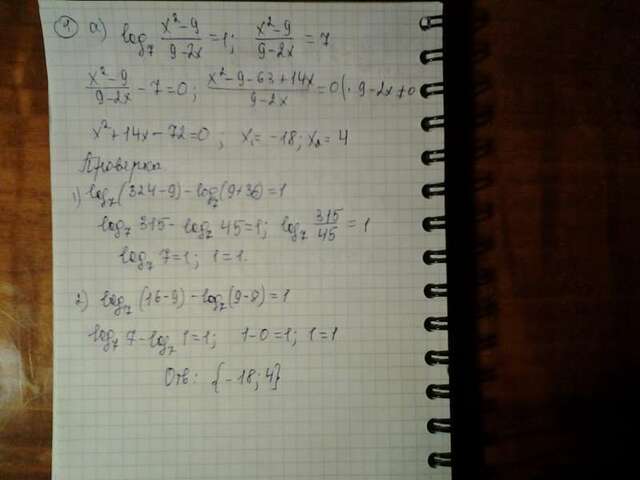 ① а) log₇ (x²-9)/(9-2x) = 1; (x²-9)/(9-2x) = 7
(x²-9)/(9-2x) - 7 = 0; (x²-9-63+14x)/(9-2x) = 0 (· 9-2x≠0
x²+14x-72=0; x₁=-18; x₂=4
Проверка
1) log₇(324-9) - log₇(9+36) = 1
log₇ 315 - log₇ 45 = 1; log₇ 315/45 = 1
log₇ 7 = 1; 1 = 1.
2) log₇ (16-9) - log₇(9-8) = 1
log₇ 7 - log₇ 1 = 1; 1-0=1; 1=1
Отв: {-18; 4}